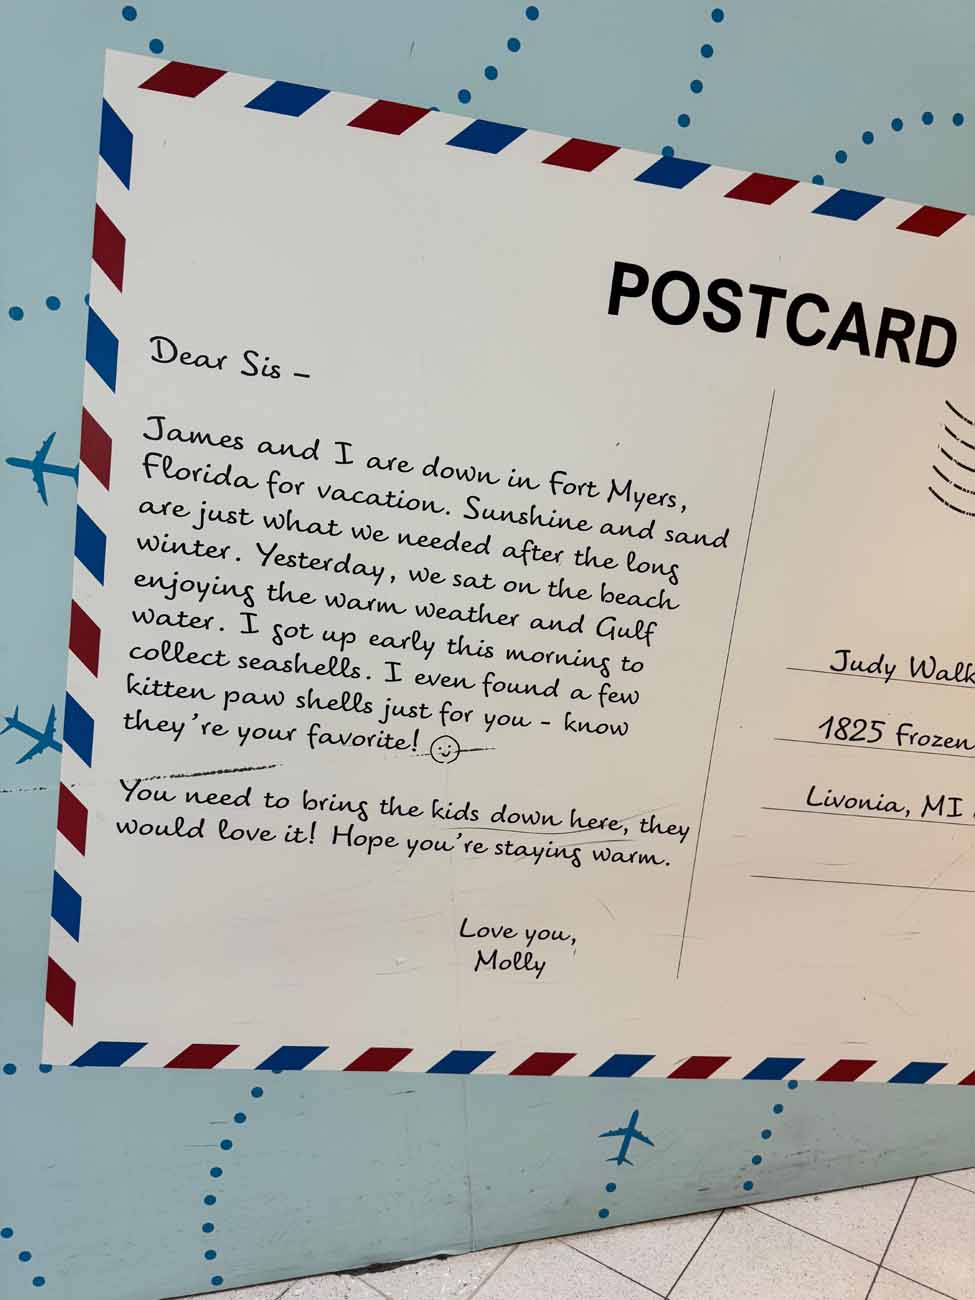 POSTCARD
Dear Sis –
James and I are down in Fort Myers,
Florida for vacation. Sunshine and sand
are just what we needed after the long
winter. Yesterday, we sat on the beach
enjoying the warm weather and Gulf
water. I got up early this morning to
collect seashells. I even found a few
kitten paw shells just for you - know
they're your favorite!
You need to bring the kids down here, they
would love it! Hope you're staying warm.
Love you,
Molly
Judy Walk
1825 Frozen
Livonia, MI